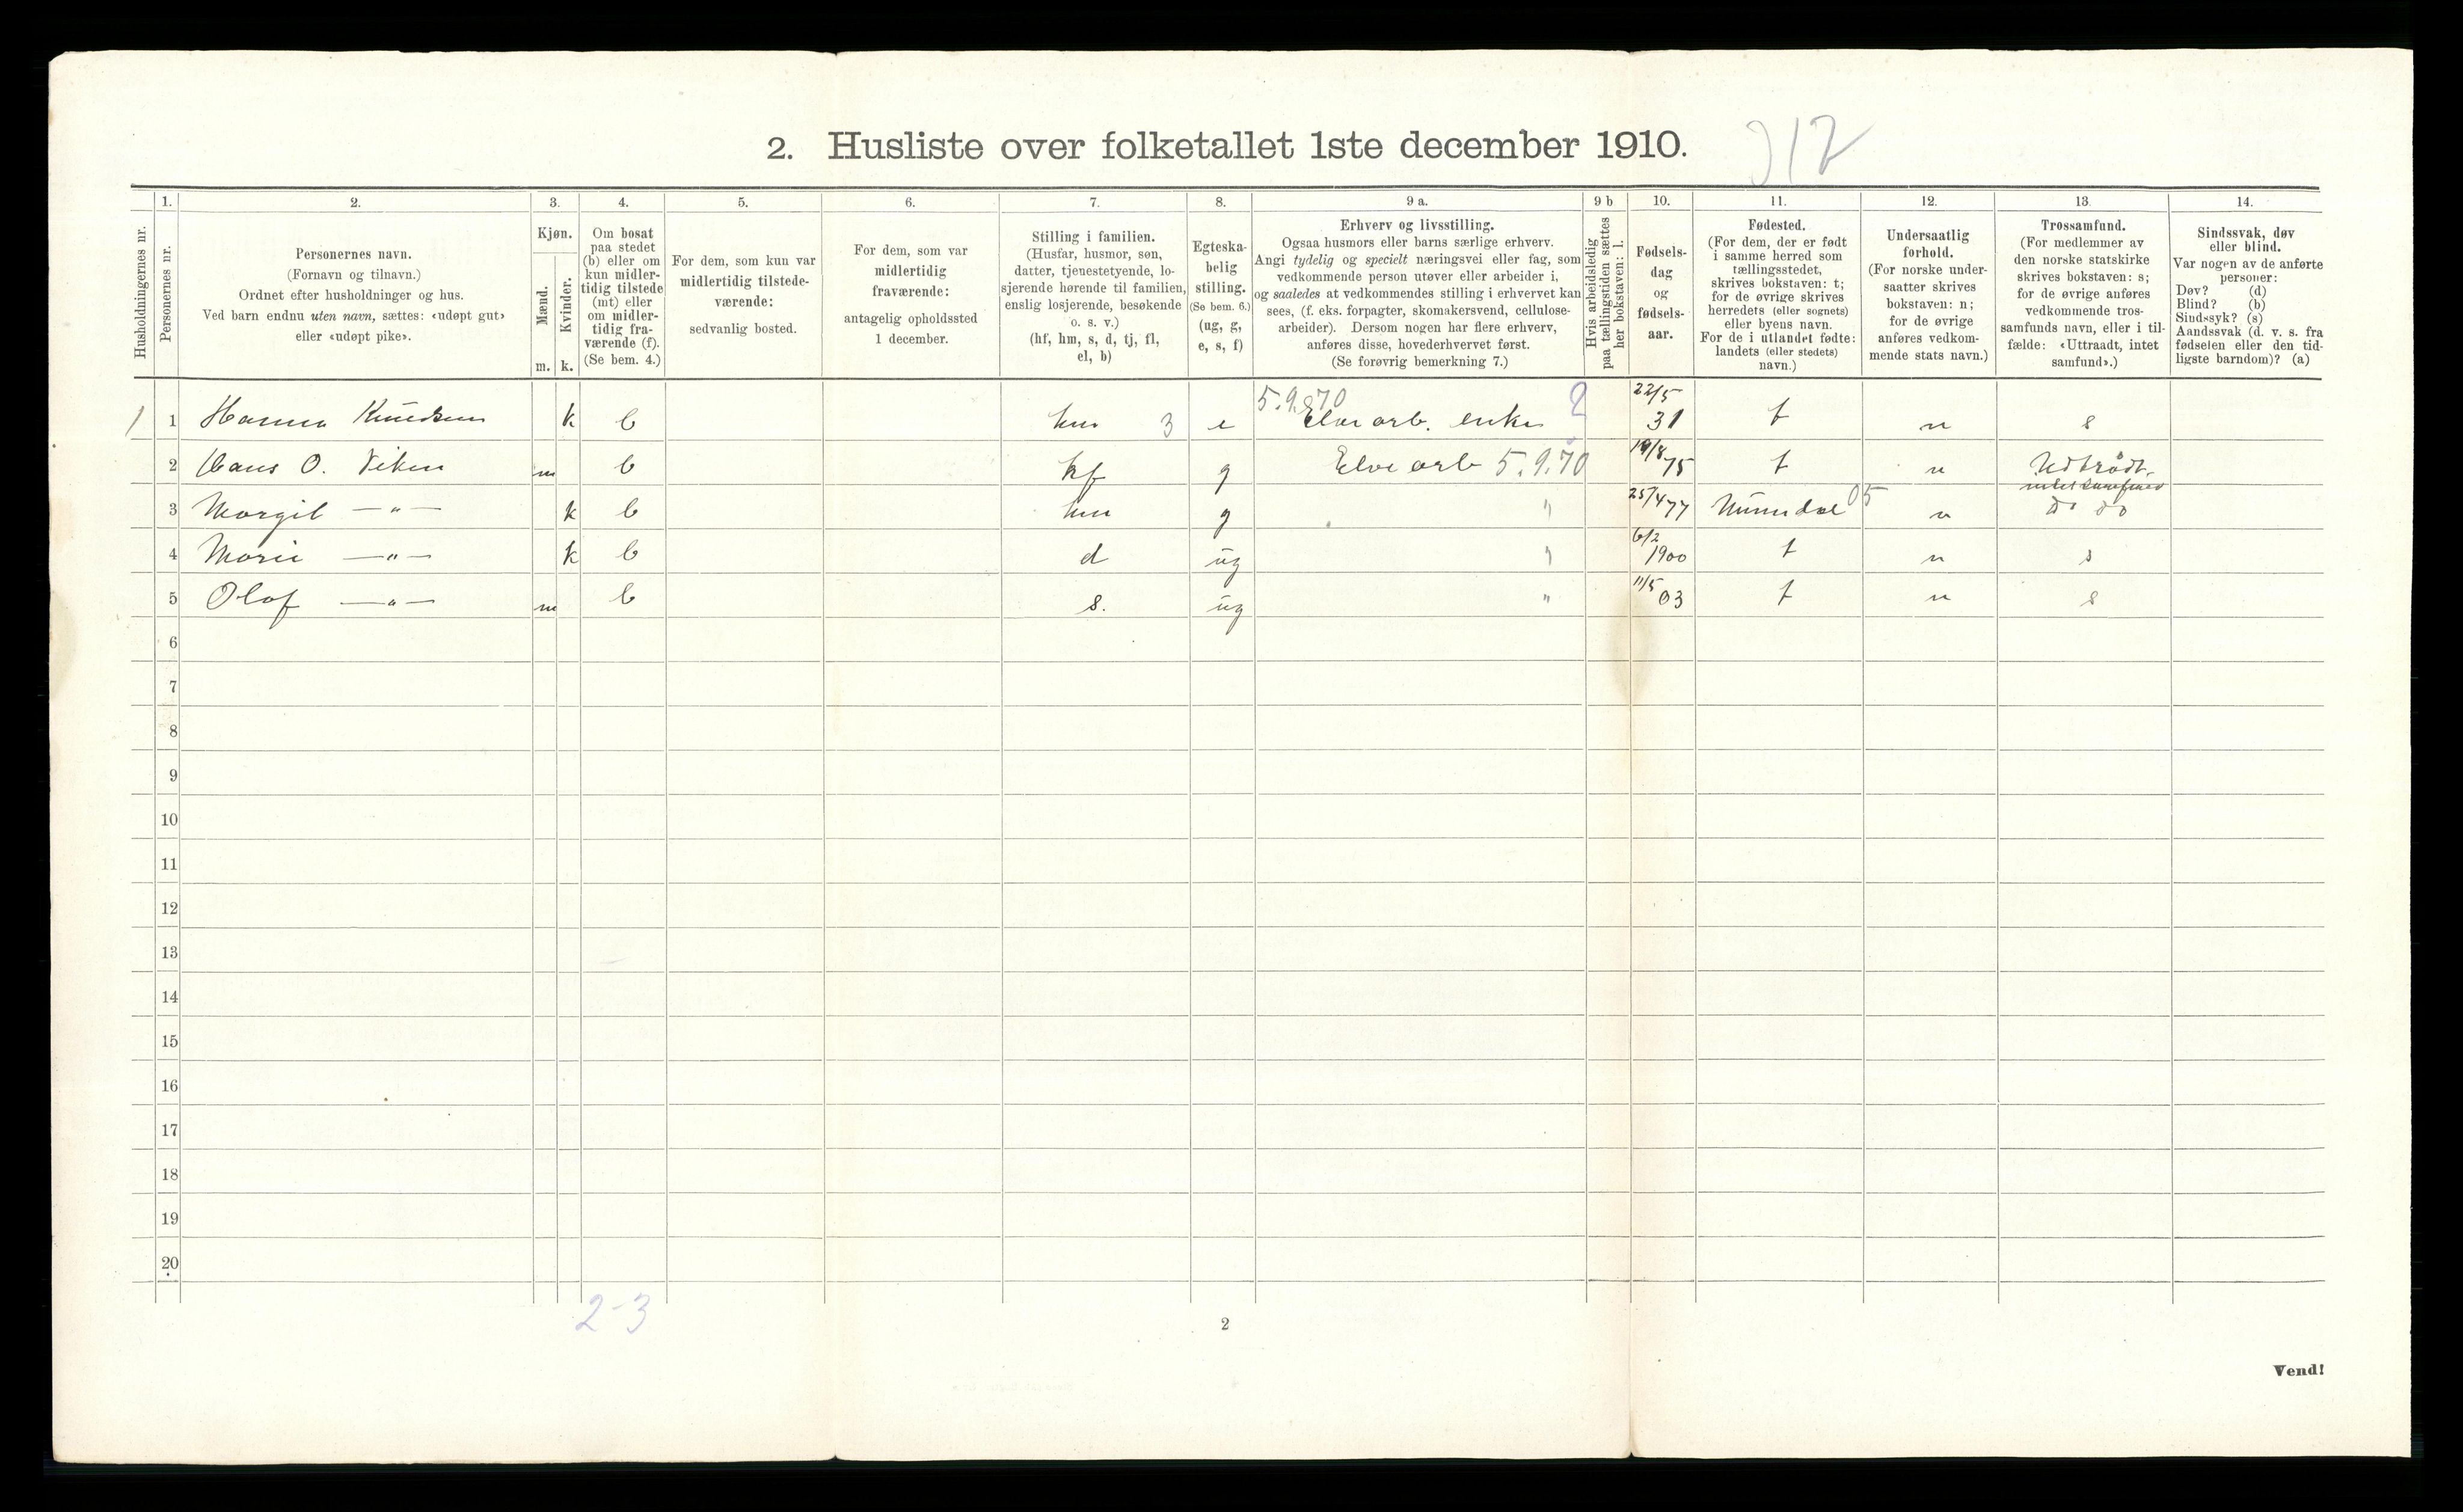 2. Husliste over folketallet 1ste december 1910.
312
1. 2. 3. 4. 5. 6. 7. 8. 9 a. 9 b 10. 11. 12. 13. 14.
Husholdningernes nr.
Personernes nr.
Personernes navn.
(Fornavn og tilnavn.)
Ordnet efter husholdninger og hus.
Ved barn endnu uten navn, sættes: «udøpt gut»
eller «udøpt pike».
Kjøn.
Mænd.
Kvinder.
m. k.
Om bosat
paa stedet
(b) eller om
kun midler-
tidig tilstede
(mt) eller
om midler-
tidig fra-
værende (f).
(Se bem. 4.)
For dem, som kun var
midlertidig tilstede-
værende:
sedvanlig bosted.
For dem, som var
midlertidig
fraværende:
antagelig opholdssted
1 december.
Stilling i familien.
(Husfar, husmor, søn,
datter, tjenestetyende, lo-
sjerende hørende til familien,
enslig losjerende, besøkende
o. s. v.)
(hf, hm, s, d, tj, fl,
el, b)
Egteska-
belig
stilling.
(Se bem. 6.)
(ug, g,
e, s, f)
Erhverv og livsstilling.
Ogsaa husmors eller barns særlige erhverv.
Angi tydelig og specielt næringsvei eller fag, som
vedkommende person utøver eller arbeider i,
og saaledes at vedkommendes stilling i erhvervet kan
sees, (f. eks. forpagter, skomakersvend, cellulose-
arbeider). Dersom nogen har flere erhverv,
anføres disse, hovederhvervet først.
(Se forøvrig bemerkning 7.)
Hvis arbeidsledig
paa tællingstiden sættes
her bokstaven: l.
Fødsels-
dag
og
fødsels-
aar.
Fødested.
(For dem, der er født
i samme herred som
tællingsstedet,
skrives bokstaven: t;
for de øvrige skrives
herredets (eller sognets)
eller byens navn.
For de i utlandet fødte:
landets (eller stedets)
navn.)
Undersaatlig
forhold.
(For norske under-
saatter skrives
bokstaven: n;
for de øvrige
anføres vedkom-
mende stats navn.)
Trossamfund.
(For medlemmer av
den norske statskirke
skrives bokstaven: s;
for de øvrige anføres
vedkommende tros-
samfunds navn, eller i til-
fælde: «Uttraadt, intet
samfund».)
Sindssvak, døv
eller blind.
Var nogen av de anførte
personer:
Døv? (d)
Blind? (b)
Sindssyk? (s)
Aandssvak (d. v. s. fra
fødselen eller den tid-
ligste barndom)? (a)
1 1 Hanna Knudsen k b hm 3 e 5.9.870 Elve arb. enke 2 22/5 31 t n s
2 Hans O. Viken m b hf g Elve arb 5.9.70 19/8 75 t n Udtrådt intet samfund
3 Margit —"— k b hm g " 25/4 77 Numedal 05 n do do
4 Marie —"— k b d ug " 6/2 1900 t n s
5 Olaf —"— m b s. ug " 11/5 03 t n s
6
7
8
9
10
11
12
13
14
15
16
17
18
19
20
2-3
2
Vend!